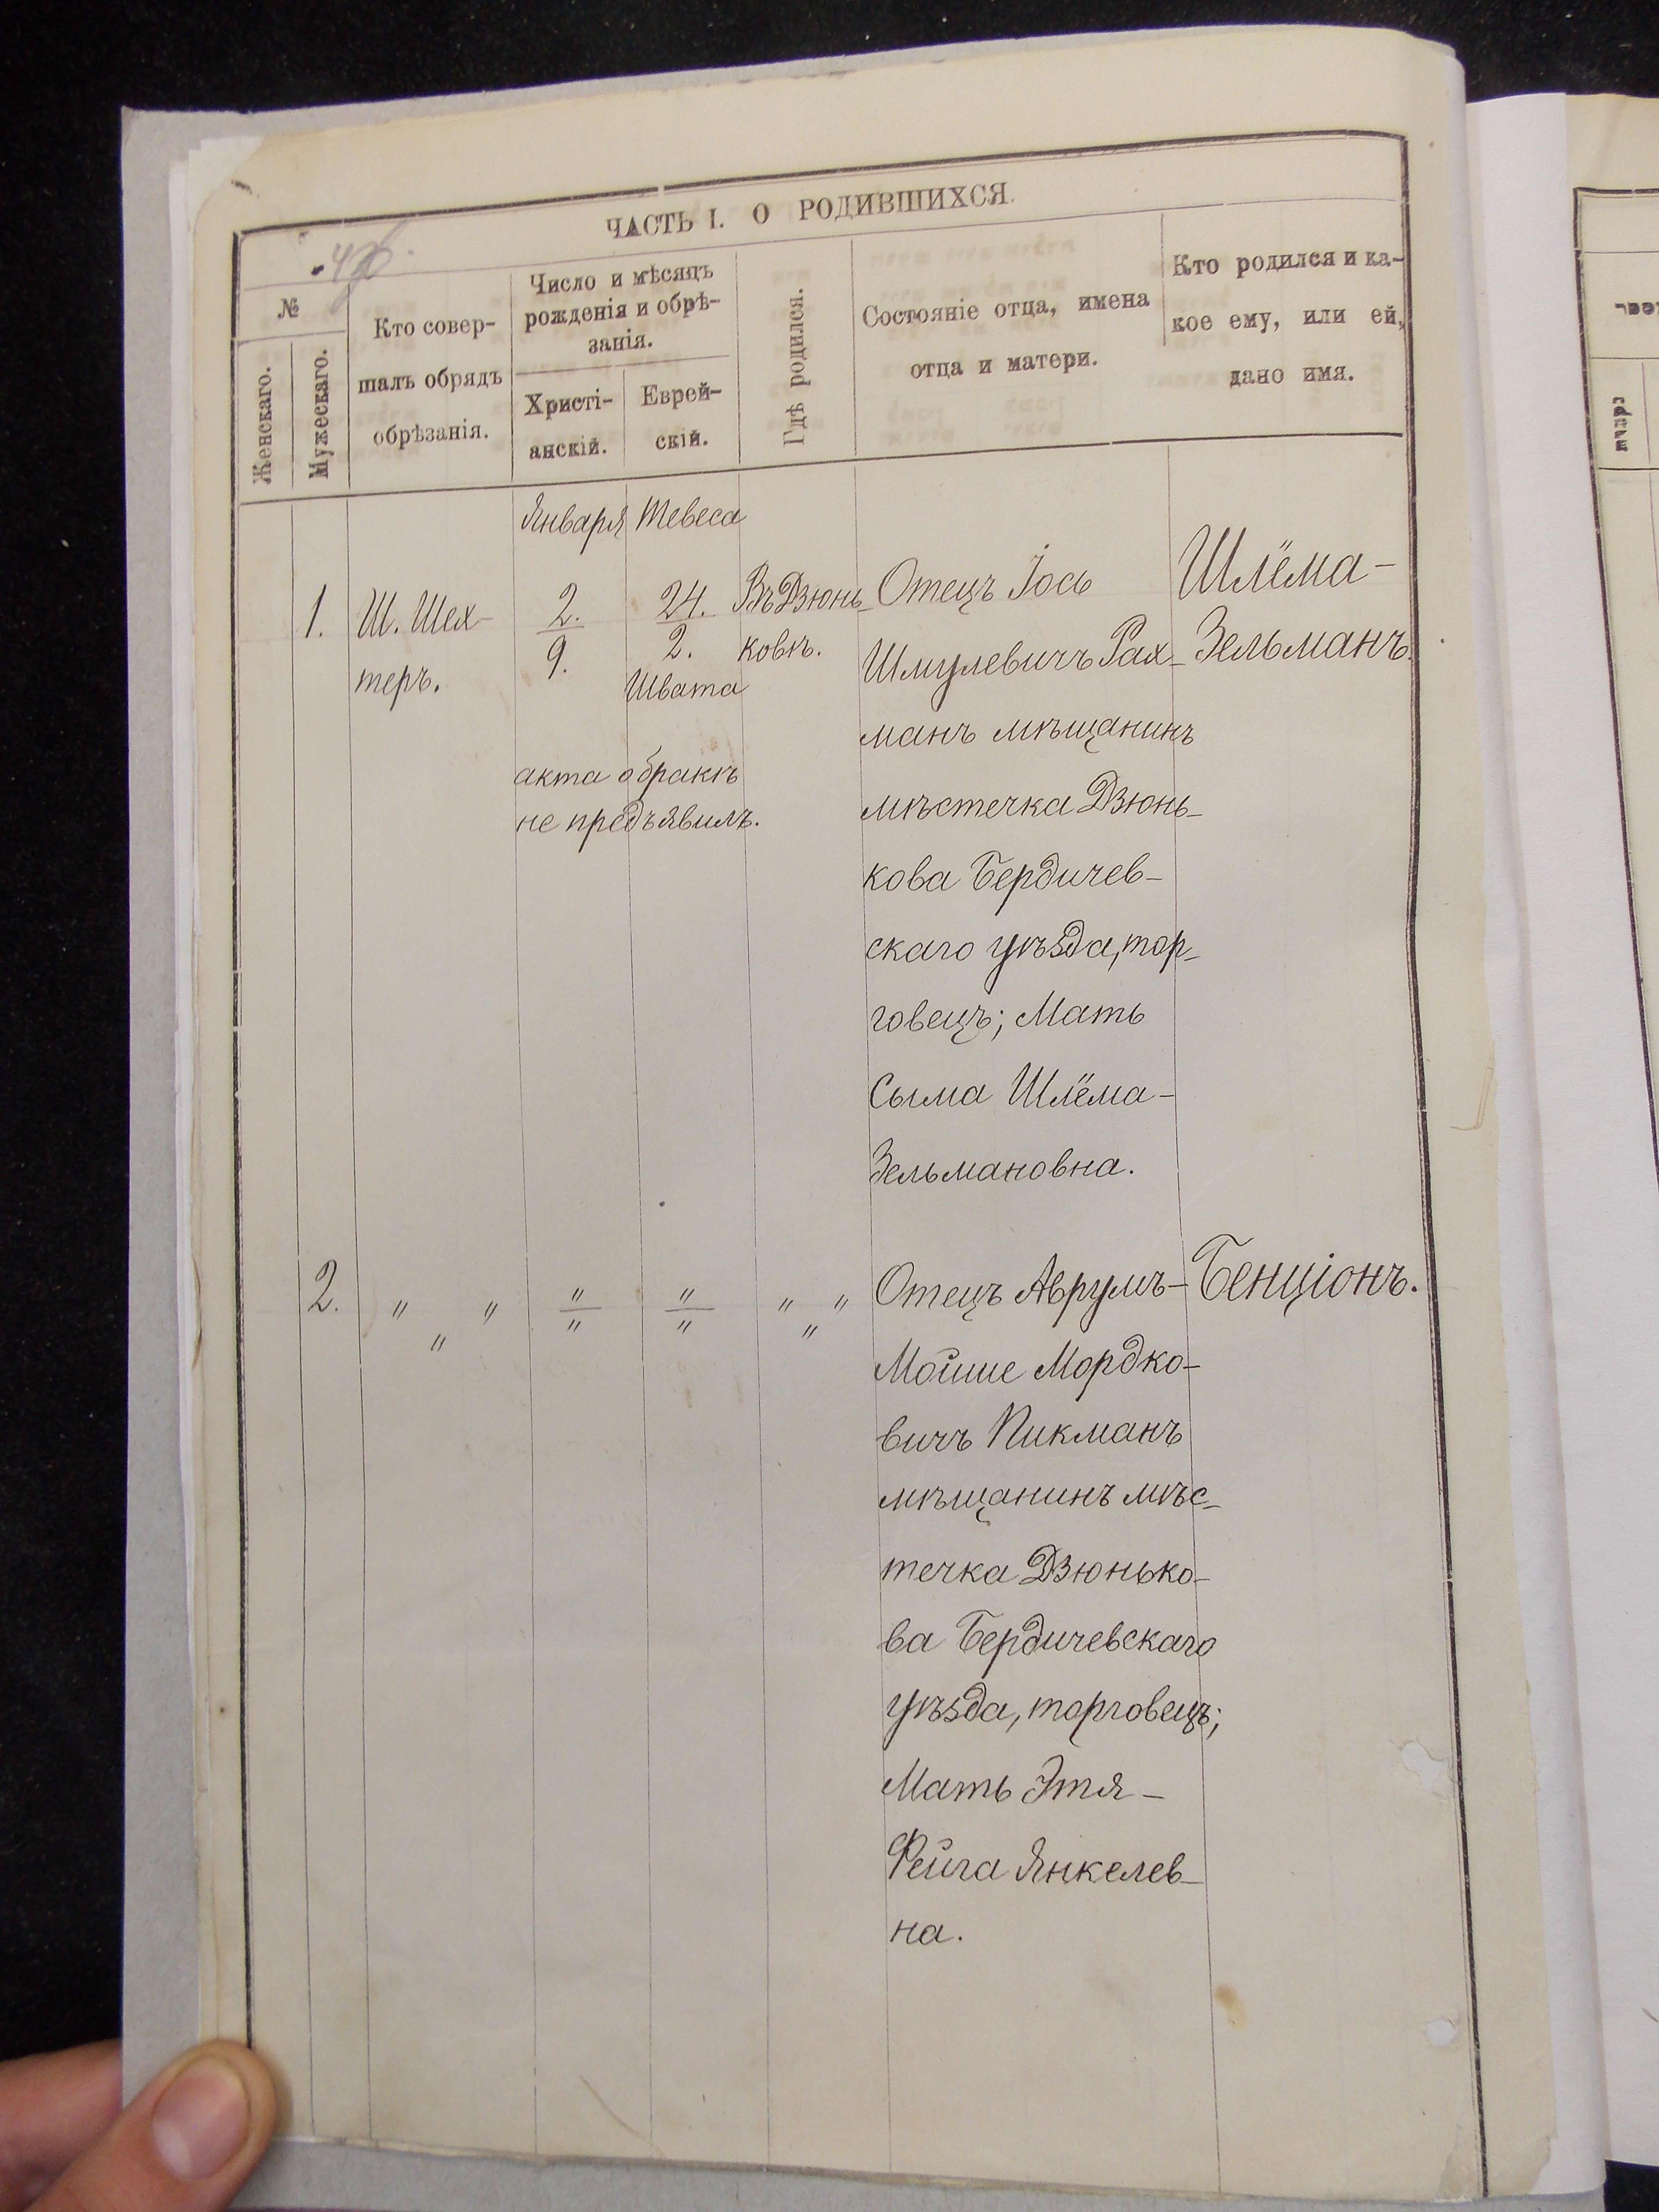 ЧАСТЬ I. О РОДИВШИХСЯ.
№
Женскаго.
Мужескаго.
Кто совер-
шалъ обрядъ
обрѣзанія.
Число и мѣсяцъ
рожденія и обрѣ-
занія.
Христі-
анскій.
Еврей-
скій.
Гдѣ родился.
Состояніе отца, имена
отца и матери.
Кто родился и ка-
кое ему, или ей,
дано имя.
Января Тевеса
1.
Ш. Шех-
теръ.
2.
9.
24.
2.
Швата
акта о бракѣ
не предъявилъ.
Въ Дзюнь-
ковѣ.
Отецъ Іось
Шмулевичъ Рах-
манъ мѣщанинъ
мѣстечка Дзюнь-
кова Бердичев-
скаго уѣзда, тор-
говецъ; Мать
Сыма Шлёма-
Зельмановна.
Шлёма-
Зельманъ.
2.
" "
"
"
"
"
"
" "
"
Отецъ Аврумъ-
Мойше Мордко-
вичъ Пикманъ
мѣщанинъ мѣс-
течка Дзюнько-
ва Бердичевскаго
уѣзда, торговецъ;
Мать Этя-
Фейга Янкелев-
на.
Бенціонъ.